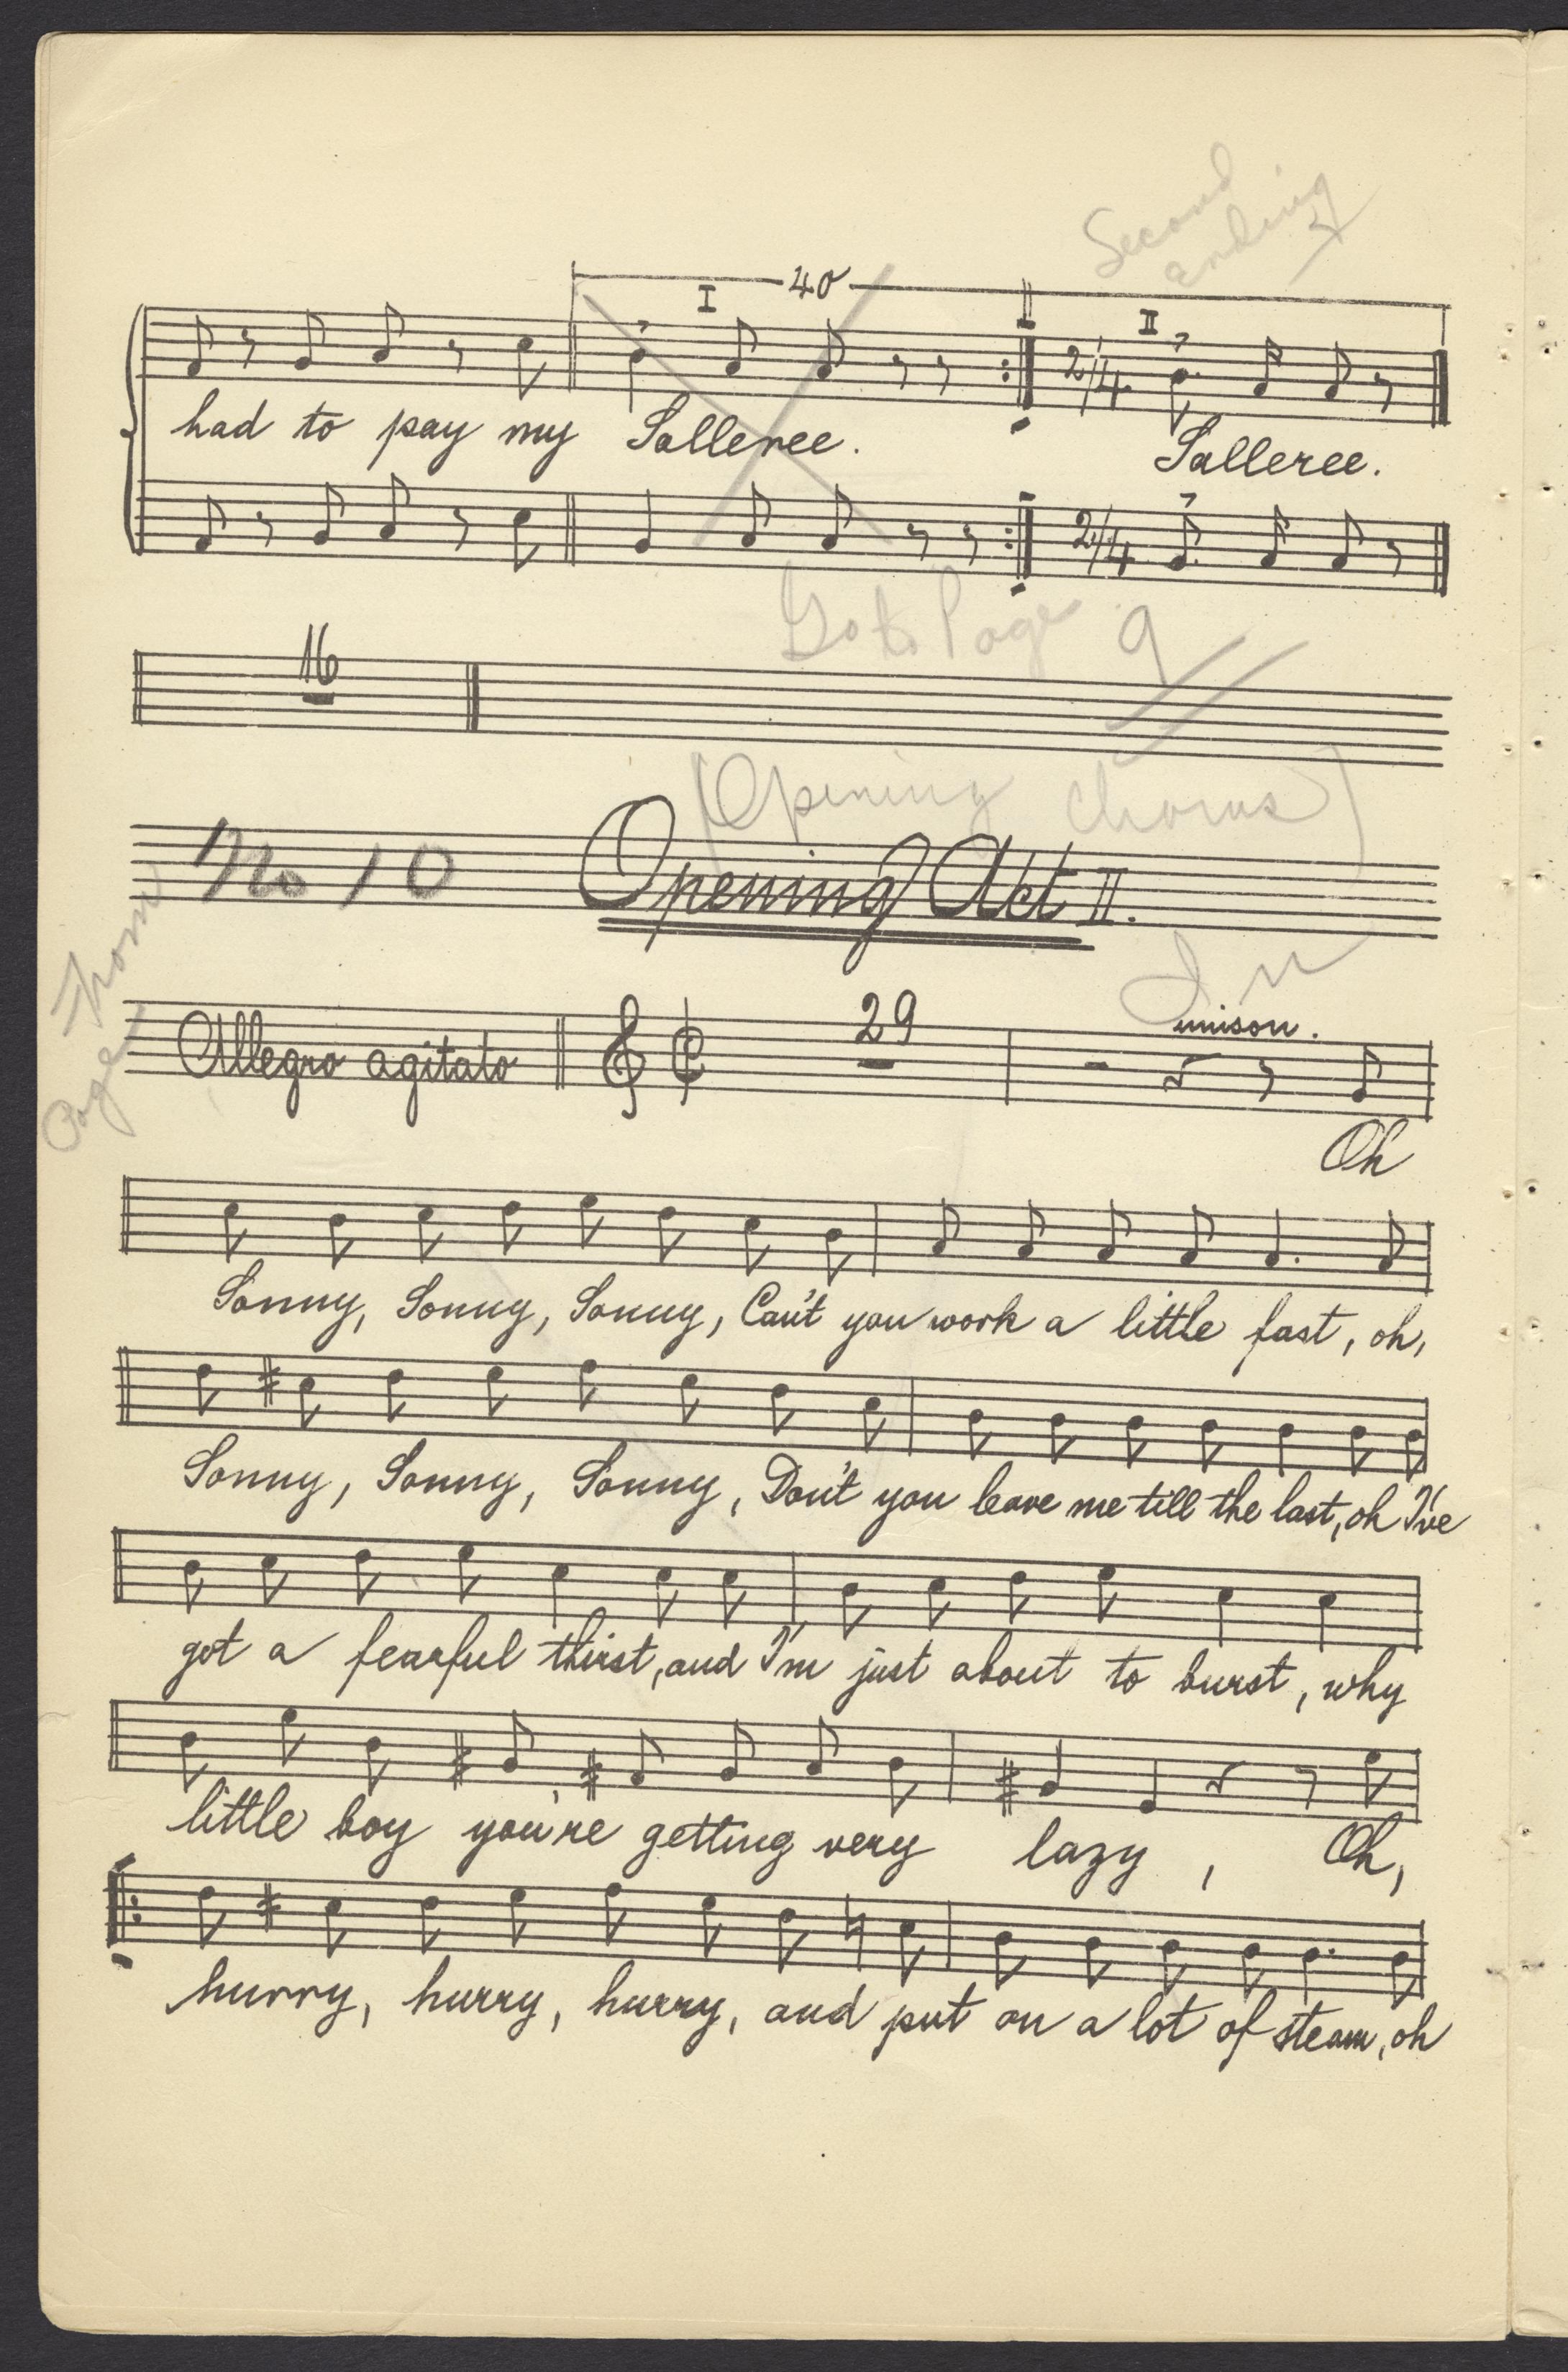 Second
Ending
40
I II
2/4
had to pay my Salleree. Salleree.
2/4
Go to Page 9
16
(Opening Chorus)
No 10 Opening Act II.
Page From
In
Allegro agitato 29 unison.
Oh
Sonny, Sonny, Sonny, Can't you work a little fast, oh,
Sonny, Sonny, Sonny, Don't you leave me till the last, oh I've
got a fearful thirst, and I'm just about to burst, why
little boy you're getting very lazy, Oh,
hurry, hurry, hurry, and put on a lot of steam, oh